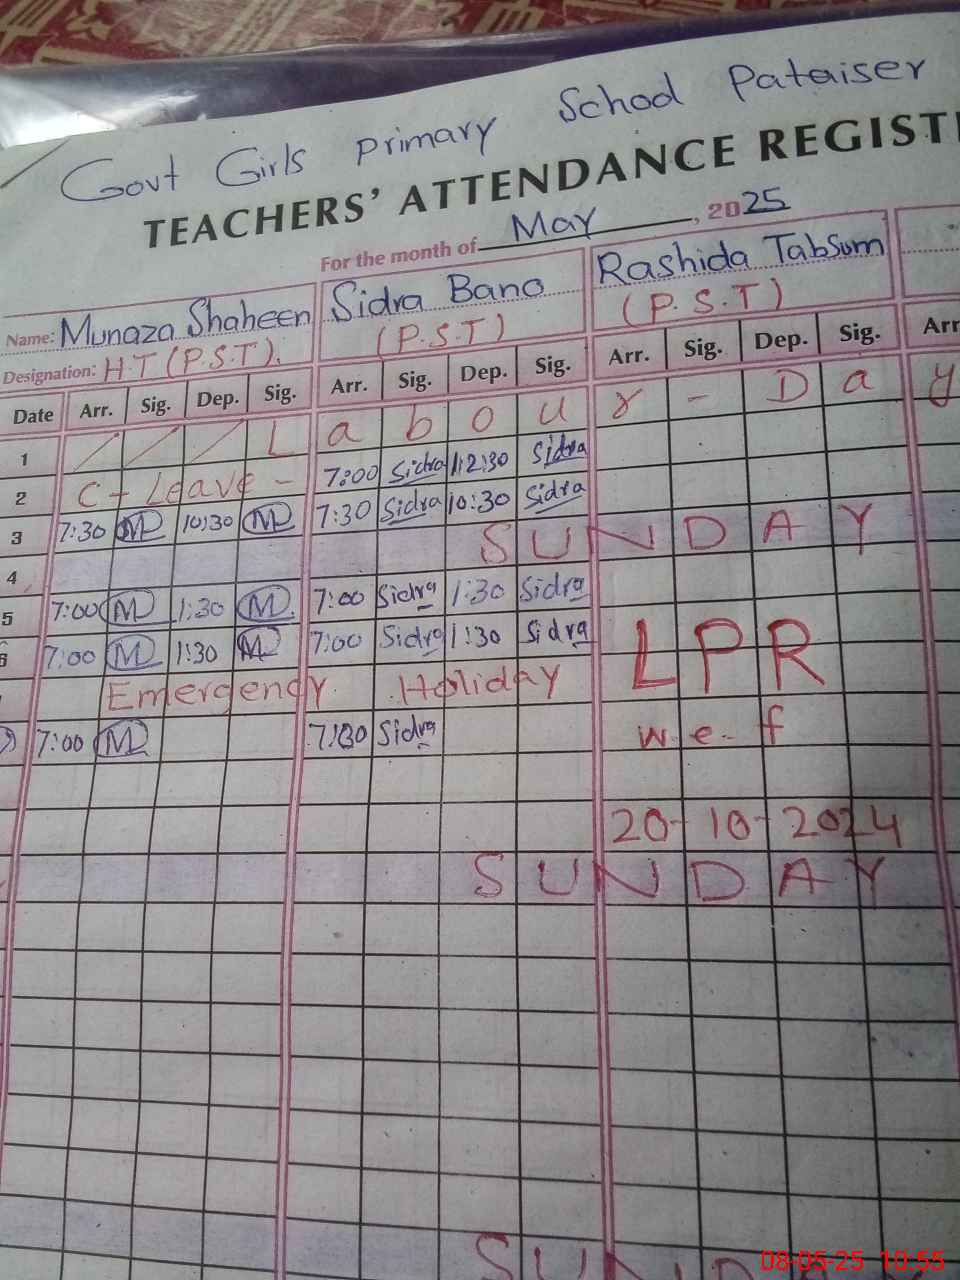 Govt Girls Primary School Pataiser
TEACHERS' ATTENDANCE REGIST
For the month of May, 2025
Name: Munaza Shaheen Sidra Bano Rashida Tabsum
Designation: H.T (P.S.T). (P.S.T) (P.S.T)
Date Arr. Sig. Dep. Sig. Arr. Sig. Dep. Sig. Arr. Sig. Dep. Sig. Arr
1 / / / L a b o u r - D a y
2 C + Leave - 7:00 Sidra 12:30 Sidra
3 7:30 M 10:30 M 7:30 Sidra 10:30 Sidra
4 S U N D A Y
5 7:00 M 1:30 M 7:00 Sidra 1:30 Sidra
6 7:00 M 1:30 M 7:00 Sidra 1:30 Sidra LPR
Emergency Holiday
7:00 M 7:00 Sidra w.e.f
20-10-2024
S U N D A Y
S U N D
08-05-25 10:55